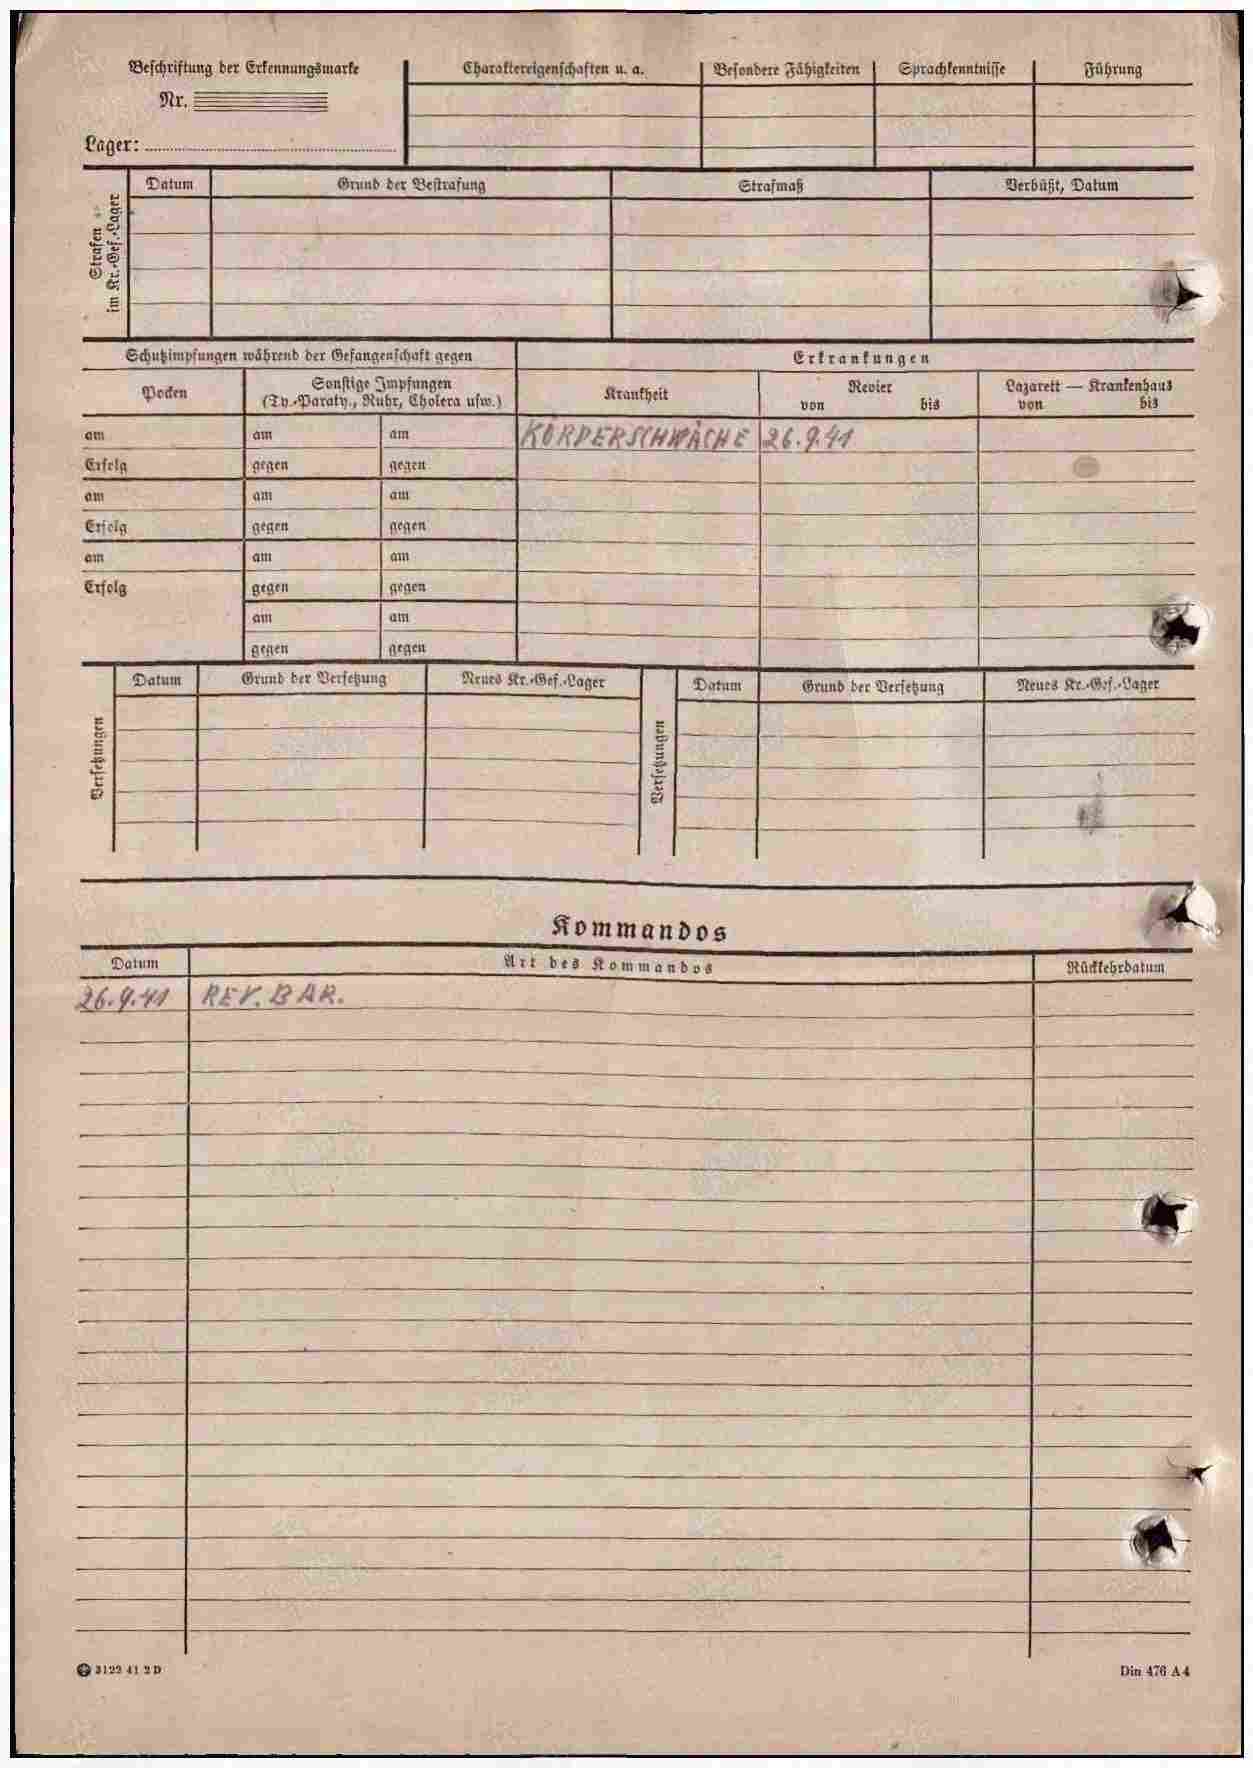 Beschriftung der Erkennungsmarke Charaktereigenschaften u. a. Besondere Fähigkeiten Sprachkenntnisse Führung
Nr.
Lager:
Strafen im Kr.-Gef.-Lager
Datum Grund der Bestrafung Strafmaß Verbüßt, Datum
Schutzimpfungen während der Gefangenschaft gegen Erkrankungen
Pocken Sonstige Impfungen Krankheit Revier Lazarett — Krankenhaus
(Ty.-Paraty., Ruhr, Cholera usw.) von bis von bis
am am am KÖRPERSCHWÄCHE 26.9.41
Erfolg gegen gegen
am am am
Erfolg gegen gegen
am am am
Erfolg gegen gegen
am am
gegen gegen
Versetzungen Datum Grund der Versetzung Neues Kr.-Gef.-Lager Versetzungen Datum Grund der Versetzung Neues Kr.-Gef.-Lager
Kommandos
Datum Art des Kommandos Rückkehrdatum
26.9.41 REV. BAR.
3122 41 2 D Din 476 A 4